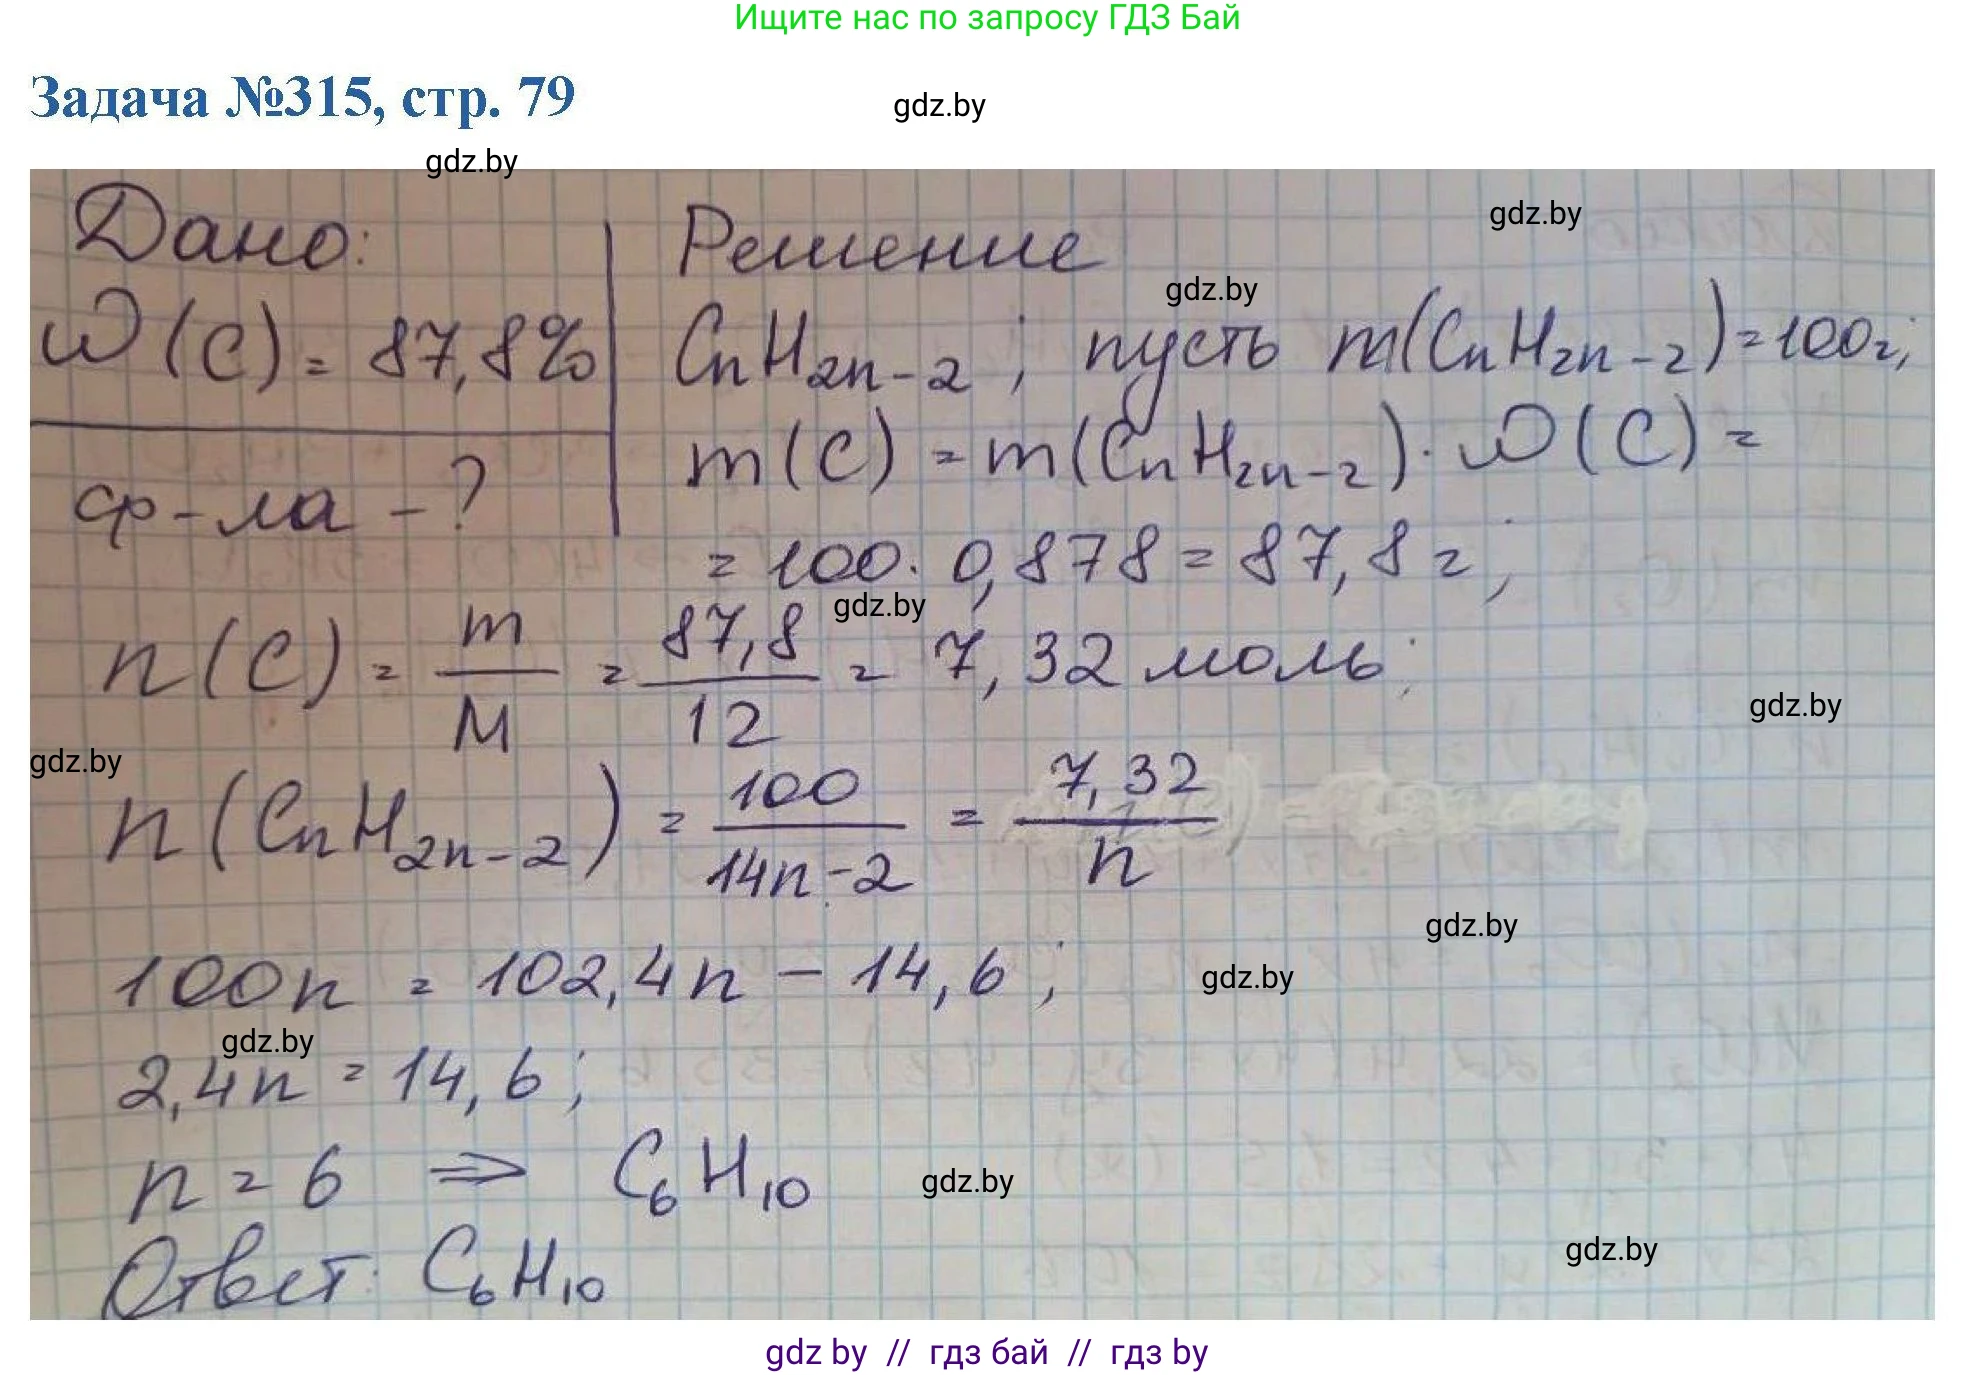 Ищите нас по запросу ГДЗ Бай
Задача №315, стр. 79
gdz.by
gdz.by
Дано:
Решение
gdz.by
gdz.by
W(C) = 87,8%
CnH2n-2 ; пусть m(CnH2n-2) = 100г;
ф-ла - ?
m(C) = m(CnH2n-2) · W(C) =
= 100 · 0,878 = 87,8 г;
gdz.by
n(C) = m/M = 87,8/12 = 7,32 моль;
gdz.by
gdz.by
n(CnH2n-2) = 100/14n-2 = 7,32/n
gdz.by
100n = 102,4n - 14,6 ;
gdz.by
gdz.by
2,4n = 14,6 ;
n = 6 ⇒ C6H10
gdz.by
gdz.by
Ответ: C6H10
gdz by // гдз бай // гдз by